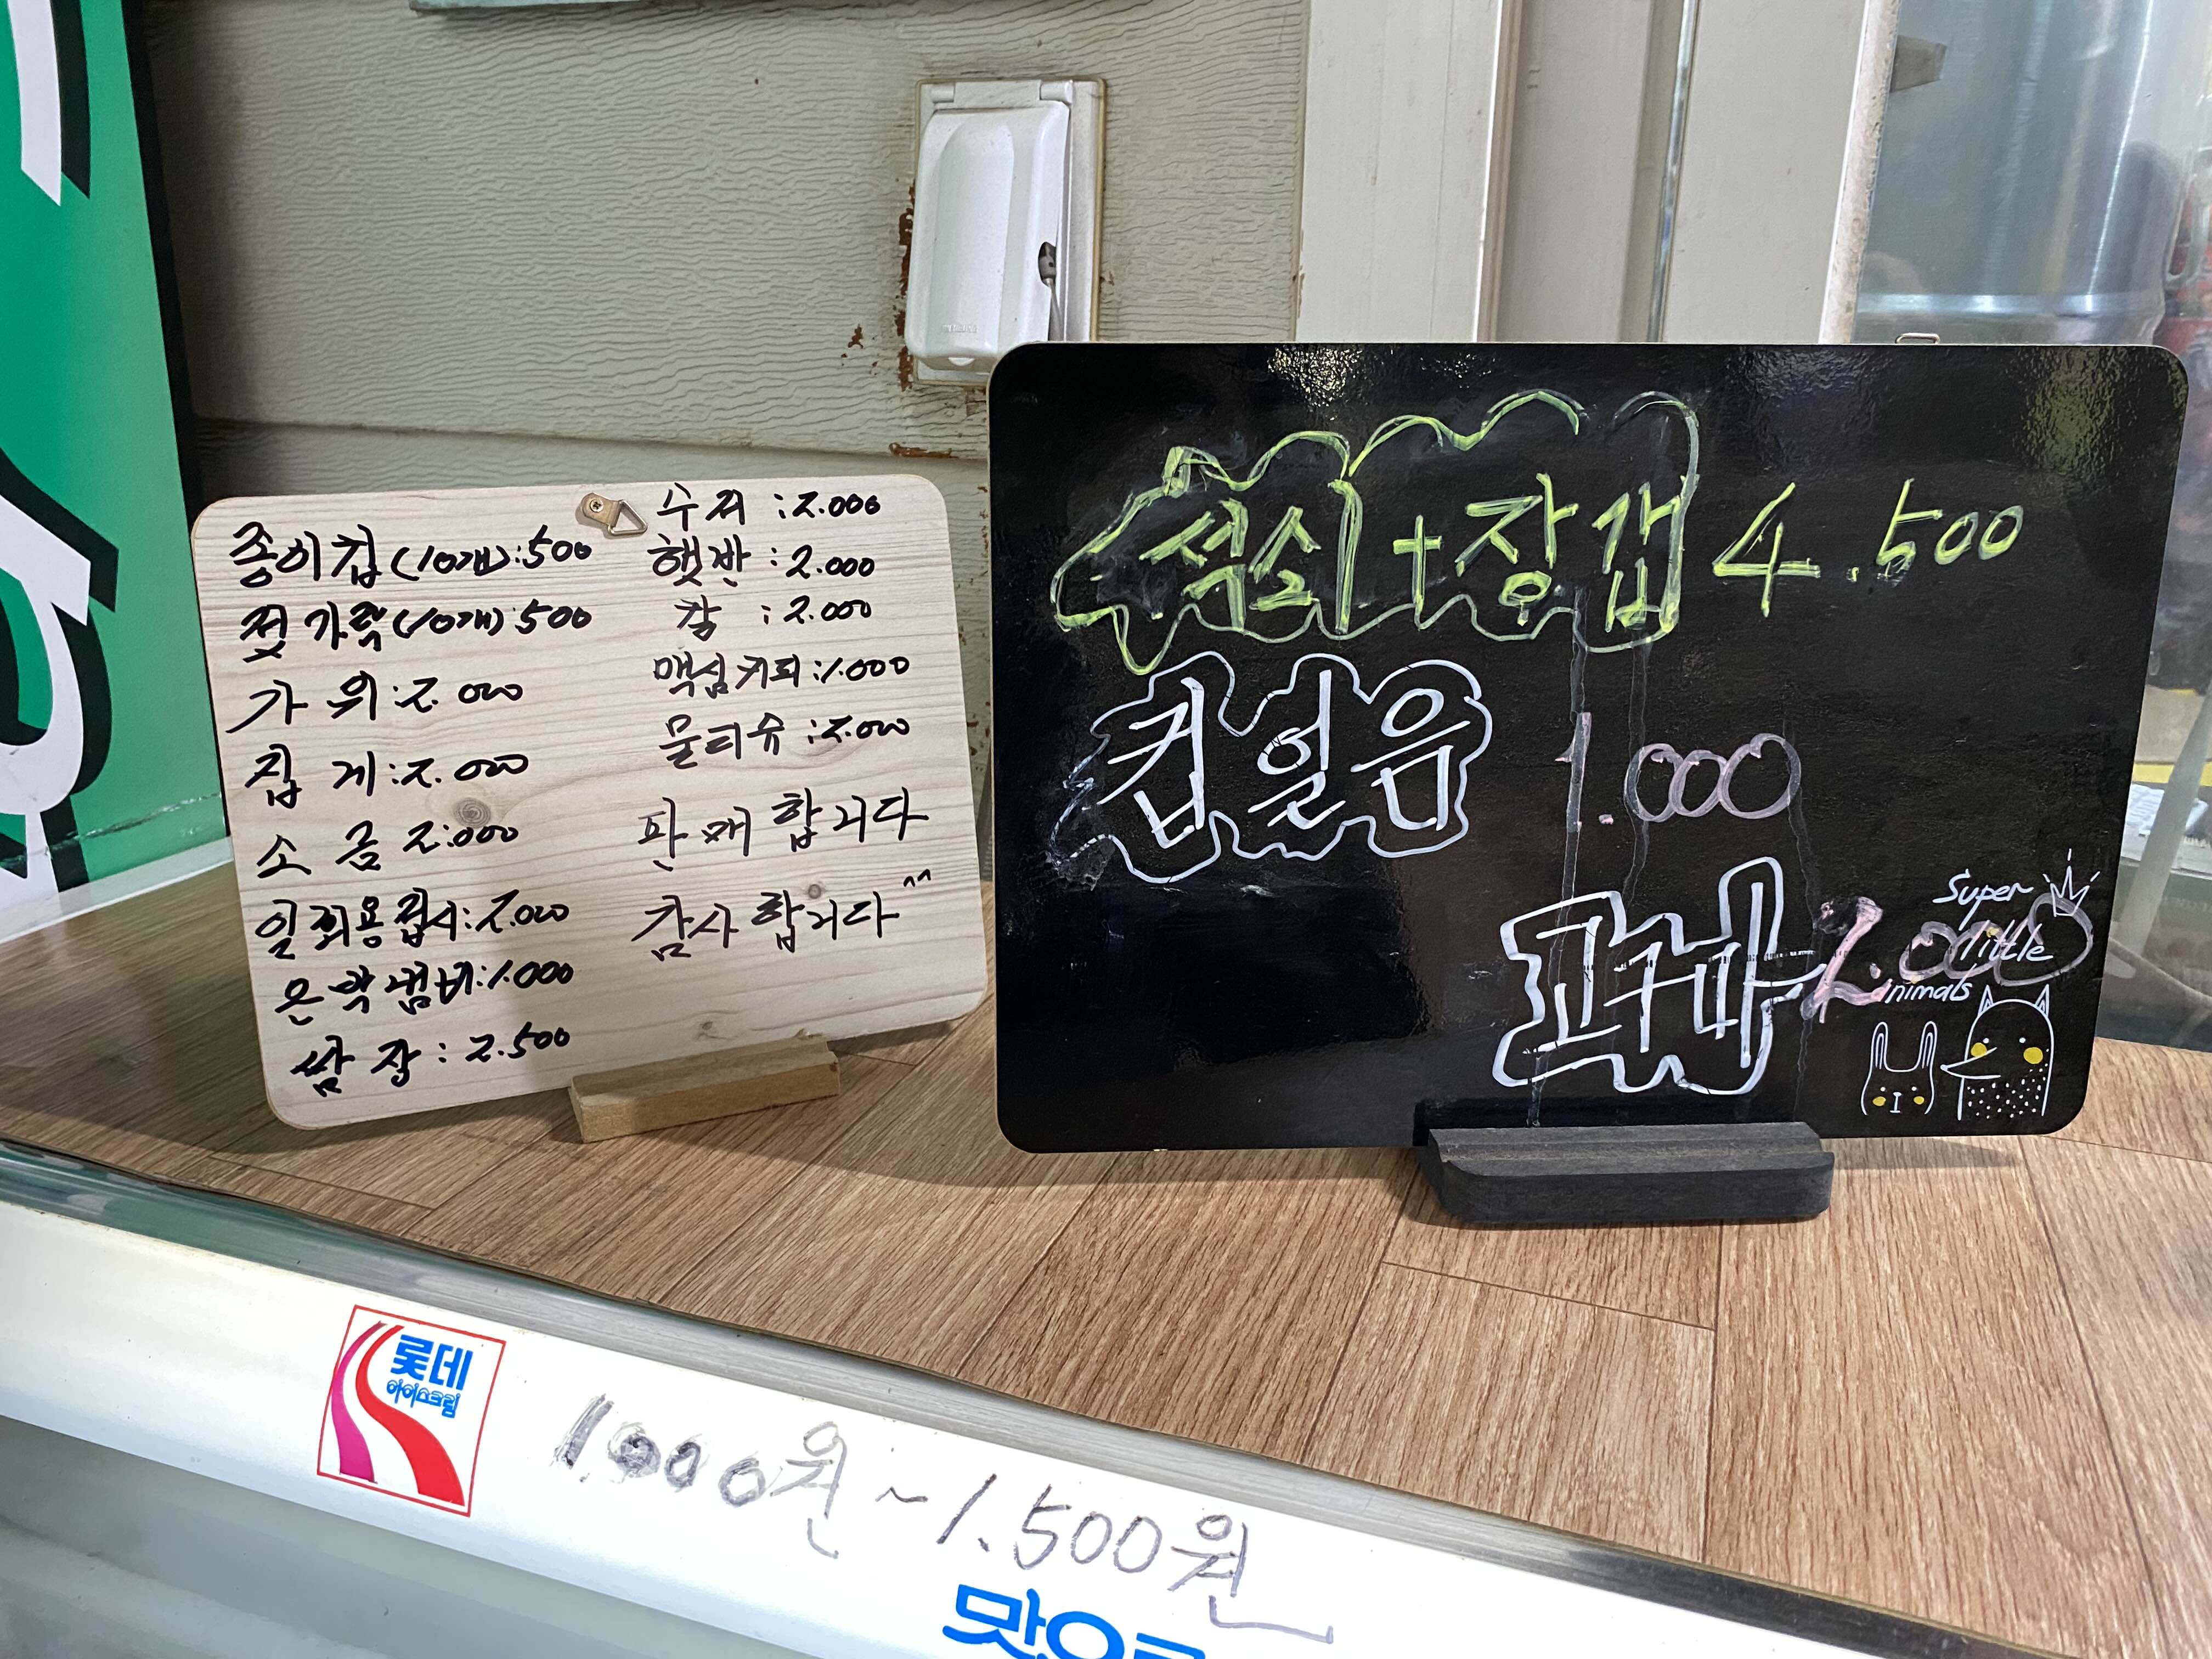 종이컵(10개):500
젓가락(10개)500
가위:2.000
집게:2.000
소금 2.000
일회용접시:2.000
은박냄비:1.000
쌈장:2.500
수저:2.000
햇반:2.000
칼:2.000
맥심커피:1.000
물티슈:2.000
판매합니다
감사합니다^^
석쇠+장갑 4.500
컵얼음 1.000
고구마 2.000
Super
little
animals
롯데
아이스크림
1.000원~1.500원